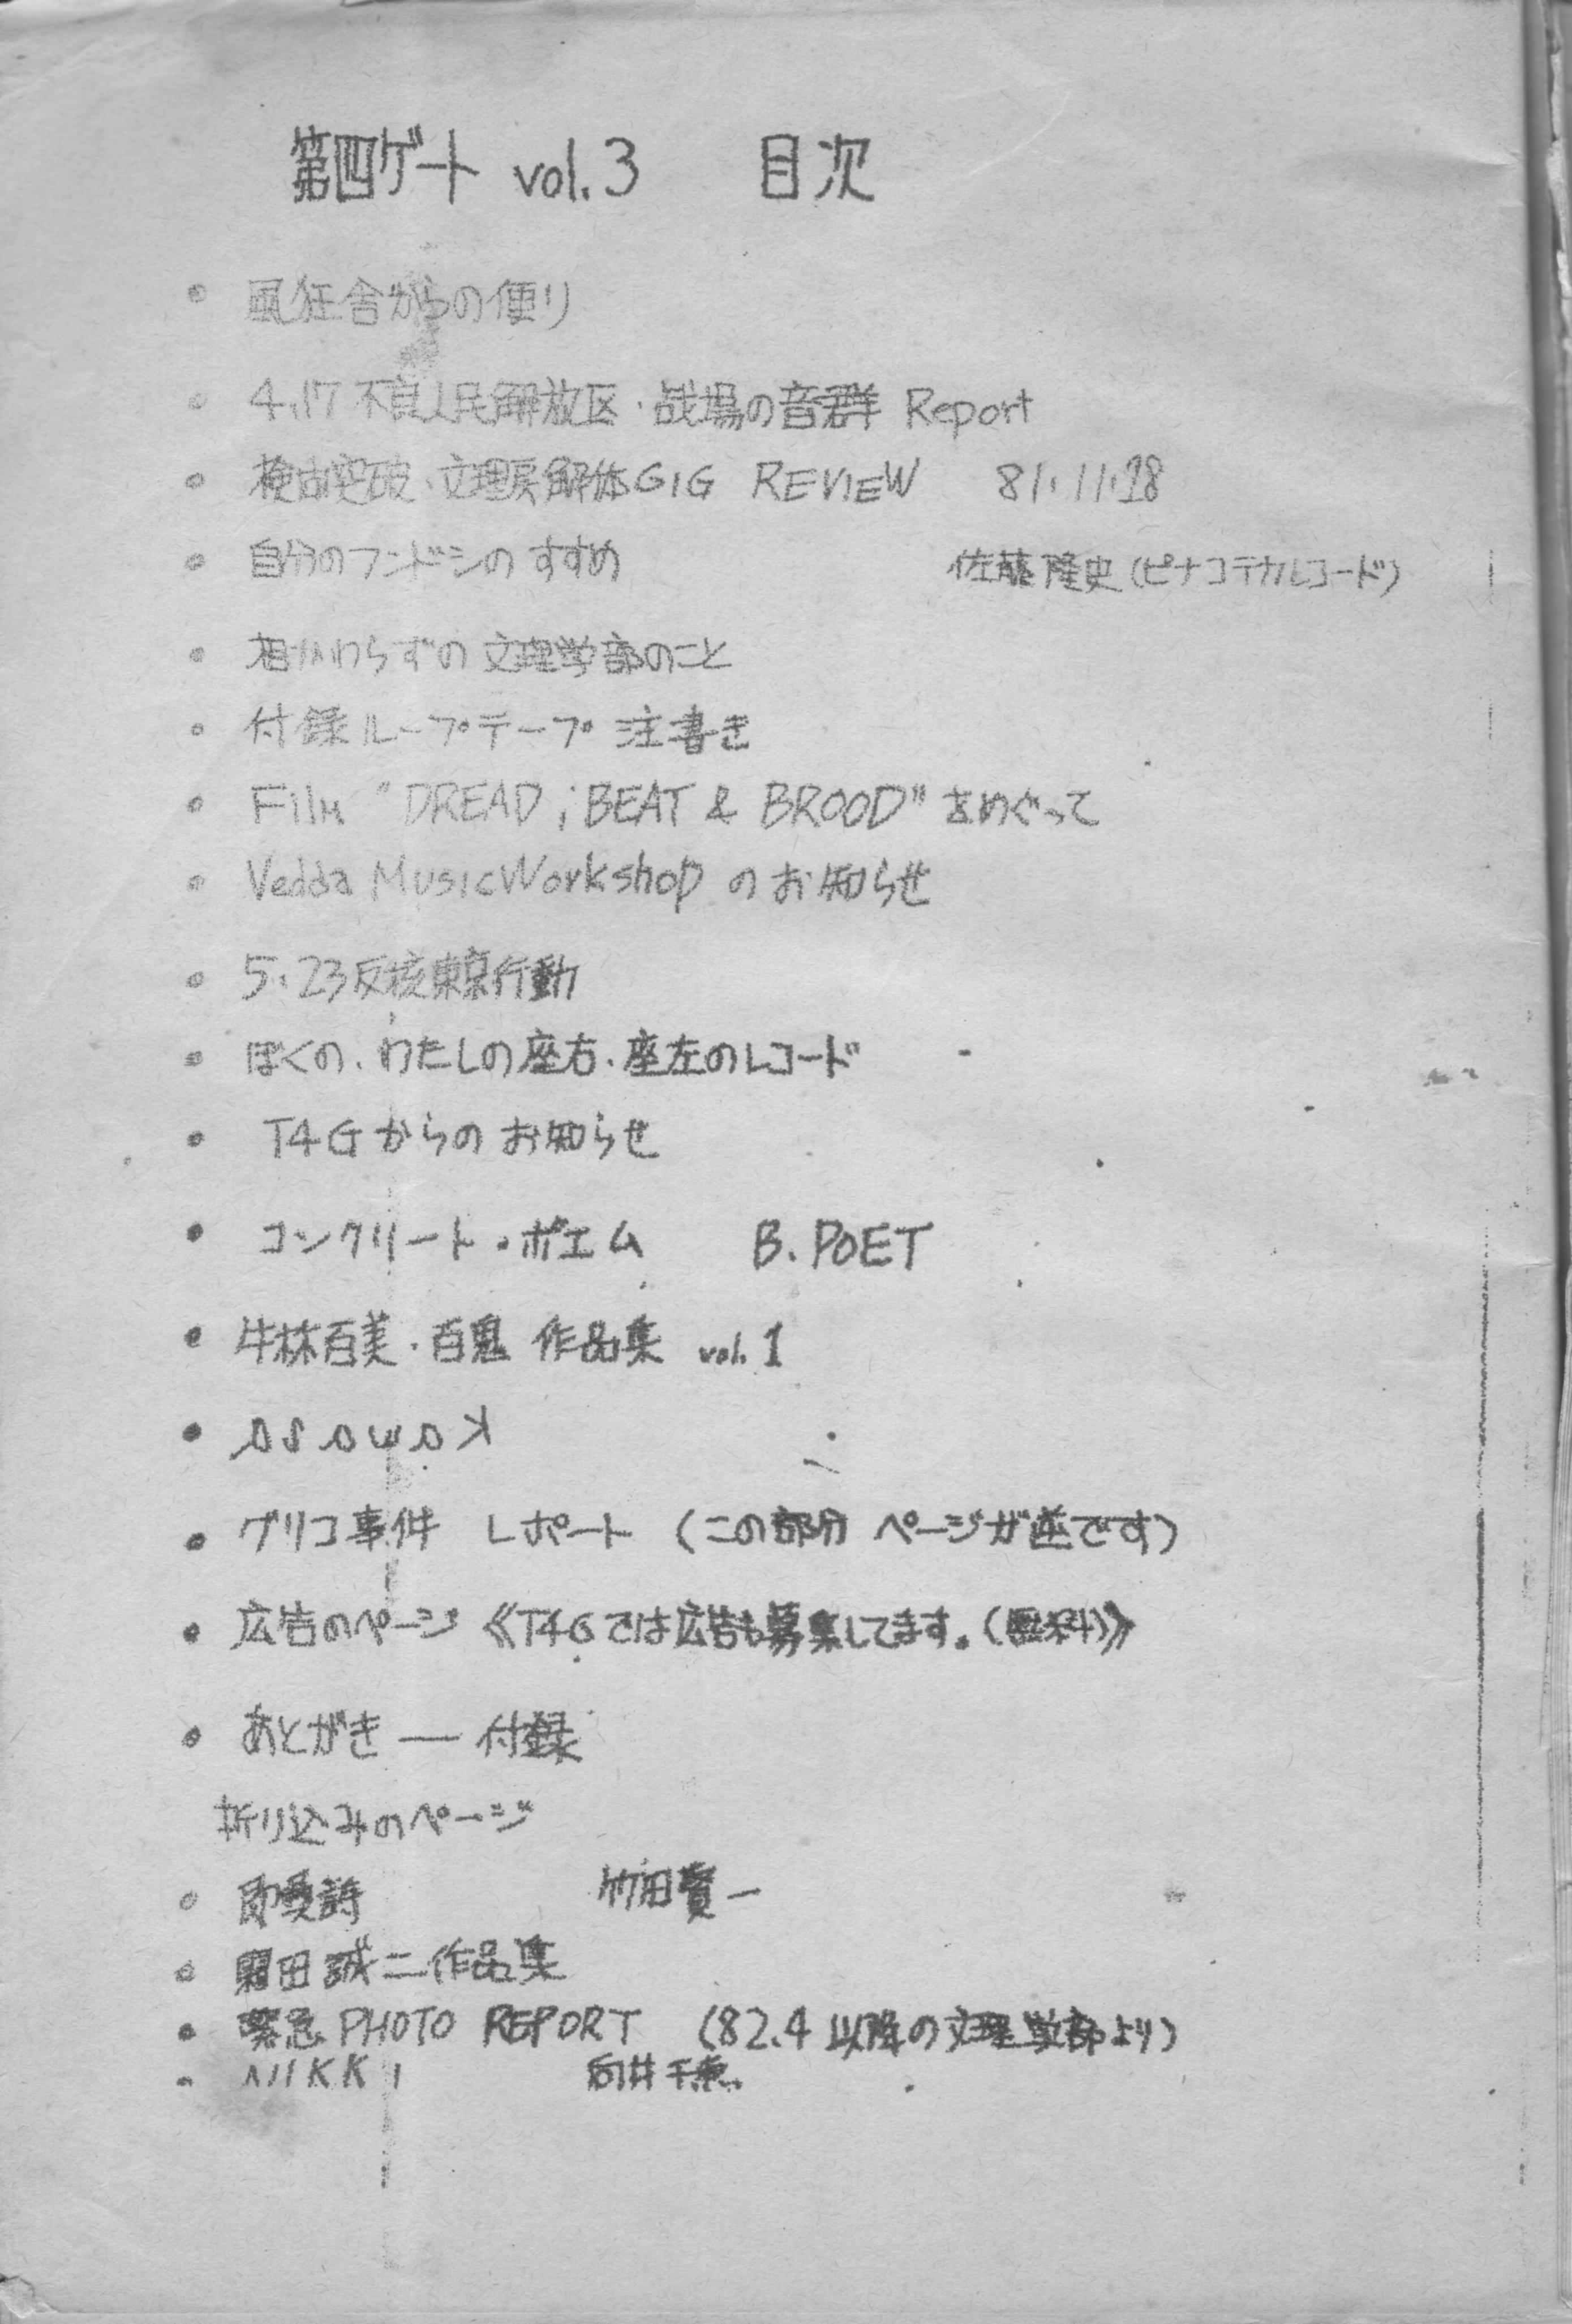 第四ゲート vol.3 目次
• 風狂舎からの便り
• 4.17 不良人民解放区・战場の音群 Report
• 検問突破・文理戻解体GIG REVIEW 81.11.28
• 自分のフンドシのすすめ 佐藤隆史(ピナコテカレコード)
• 相かわらずの文理学部のこと
• 付録ループテープ 注書き
• Film "DREAD ; BEAT & BROOD" をめぐって
• Vedda MusicWorkshop のお知らせ
• 5.23反核東京行動
• ぼくの、わたしの座右・座左のレコード
• T4Gからのお知らせ
• コンクリート・ポエム B. POET
• 牛林百美・百鬼 作品集 vol.1
•
• グリコ事件 レポート (この部分 ページが逆です)
• 広告のページ 《T4Gでは広告も募集してます。(無料)》
• あとがき — 付録
折り込みのページ
• 竹田賢一
• 田誠二作品集
• 緊急 PHOTO REPORT (82.4 以降の文理学部より)
• NIKKI 向井千恵